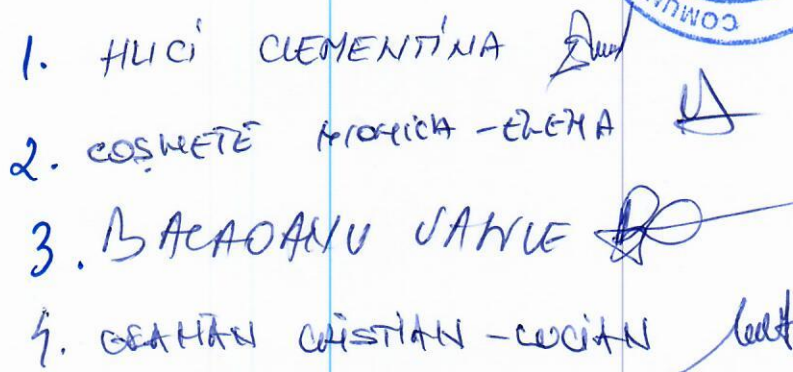 COMUN
1. HUCI CLEMENTINA
2. COȘMETE MONICA-ELENA
3. BACAOANU VASILE
4. GEAMĂN CRISTIAN-LUCIAN